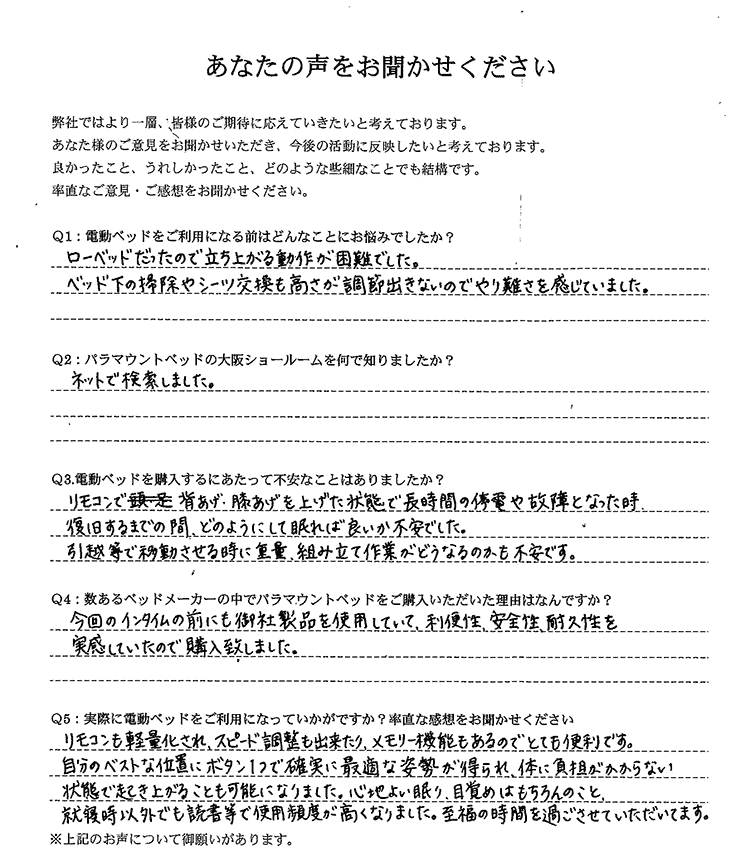 あなたの声をお聞かせください
弊社ではより一層、皆様のご期待に応えていきたいと考えております。
あなた様のご意見をお聞かせいただき、今後の活動に反映したいと考えております。
良かったこと、うれしかったこと、どのような些細なことでも結構です。
率直なご意見・ご感想をお聞かせください。
Q1：電動ベッドをご利用になる前はどんなことにお悩みでしたか？
ローベッドだったので立ち上がる動作が困難でした。
ベッド下の掃除やシーツ交換も高さが調節出きないのでやり難さを感じていました。
Q2：パラマウントベッドの大阪ショールームを何で知りましたか？
ネットで検索しました。
Q3.電動ベッドを購入するにあたって不安なことはありましたか？
リモコンで背あげ・膝あげを上げた状態で長時間の停電や故障となった時、
復旧するまでの間、どのようにして眠れば良いか不安でした。
引越等で移動させる時に重量、組み立て作業がどうなるのかも不安です。
Q4：数あるベッドメーカーの中でパラマウントベッドをご購入いただいた理由はなんですか？
今回のインタイムの前にも御社製品を使用していて、利便性、安全性、耐久性を
実感していたので購入致しました。
Q5：実際に電動ベッドをご利用になっていかがですか？率直な感想をお聞かせください
リモコンも軽量化され、スピード調整も出来たり、メモリー機能もあるのでとても便利です。
自分のベストな位置にボタン1つで確実に最適な姿勢が得られ、体に負担がかからない
状態で起き上がることも可能になりました。心地よい眠り、目覚めはもちろんのこと、
就寝時以外でも読書等で使用頻度が高くなりました。至福の時間を過ごさせていただいてます。
※上記のお声について御願いがあります。